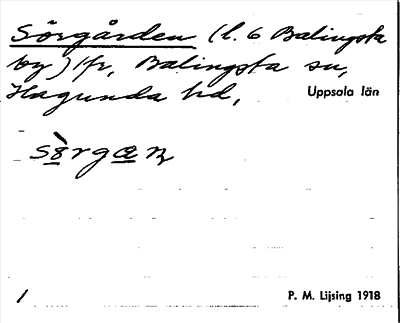 Sörgården (l. 6 Balingsta
by) fr, Balingsta sn,
Hagunda hd, Uppsala län
sörgaɳ
1 P. M. Lijsing 1918